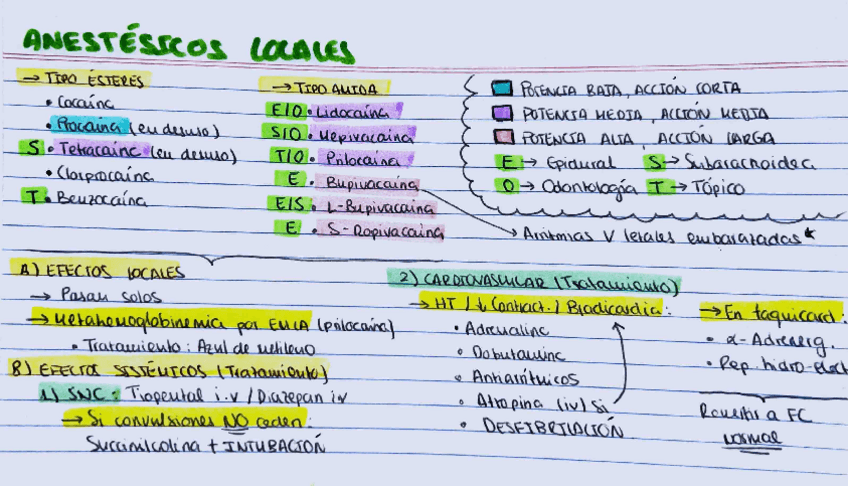 ANESTÉSICOS LOCALES
→ TIPO ÉSTERES
• Cocaína
• Procaína (en desuso)
S • Tetracaína (en desuso)
• Clorprocaína
T • Benzocaína
→ TIPO AMIDA
E/O • Lidocaína
S/O • Mepivacaína
T/O • Prilocaína
E • Bupivacaína
E/S • L-Bupivacaína
E • S-Ropivacaína
POTENCIA BAJA, ACCIÓN CORTA
POTENCIA MEDIA, ACCIÓN MEDIA
POTENCIA ALTA, ACCIÓN LARGA
E → Epidural S → Subaracnoidea
O → Odontología T → Tópico
→ Arritmias V letales embarazadas*
A) EFECTOS LOCALES
→ Pasan solos
→ Metahemoglobinemia por EMLA (prilocaína)
• Tratamiento: Azul de metileno
B) EFECTOS SISTÉMICOS (Tratamiento)
1) SNC: Tiopental i.v / Diazepan iv
→ Si convulsiones NO ceden:
Succinilcolina + INTUBACIÓN
2) CARDIOVASCULAR (Tratamiento)
→ HT / ↓ Contract. / Bradicardia:
• Adrenalina
• Dobutamina
• Antiarrítmicos
• Atropina (iv) si
• DESFIBRILACIÓN
→ En taquicard:
• α-Adrenerg.
• Rep. hidro-elect
Revertir a FC
normal